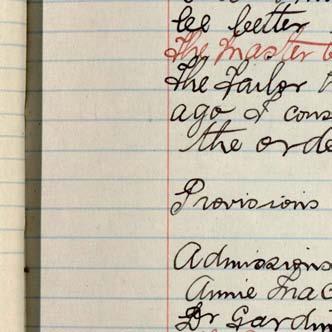 be better
The Master
The Tailor
ago I cons
the orde
Provisions
Admissions
Annie Mac
Dr Gardin